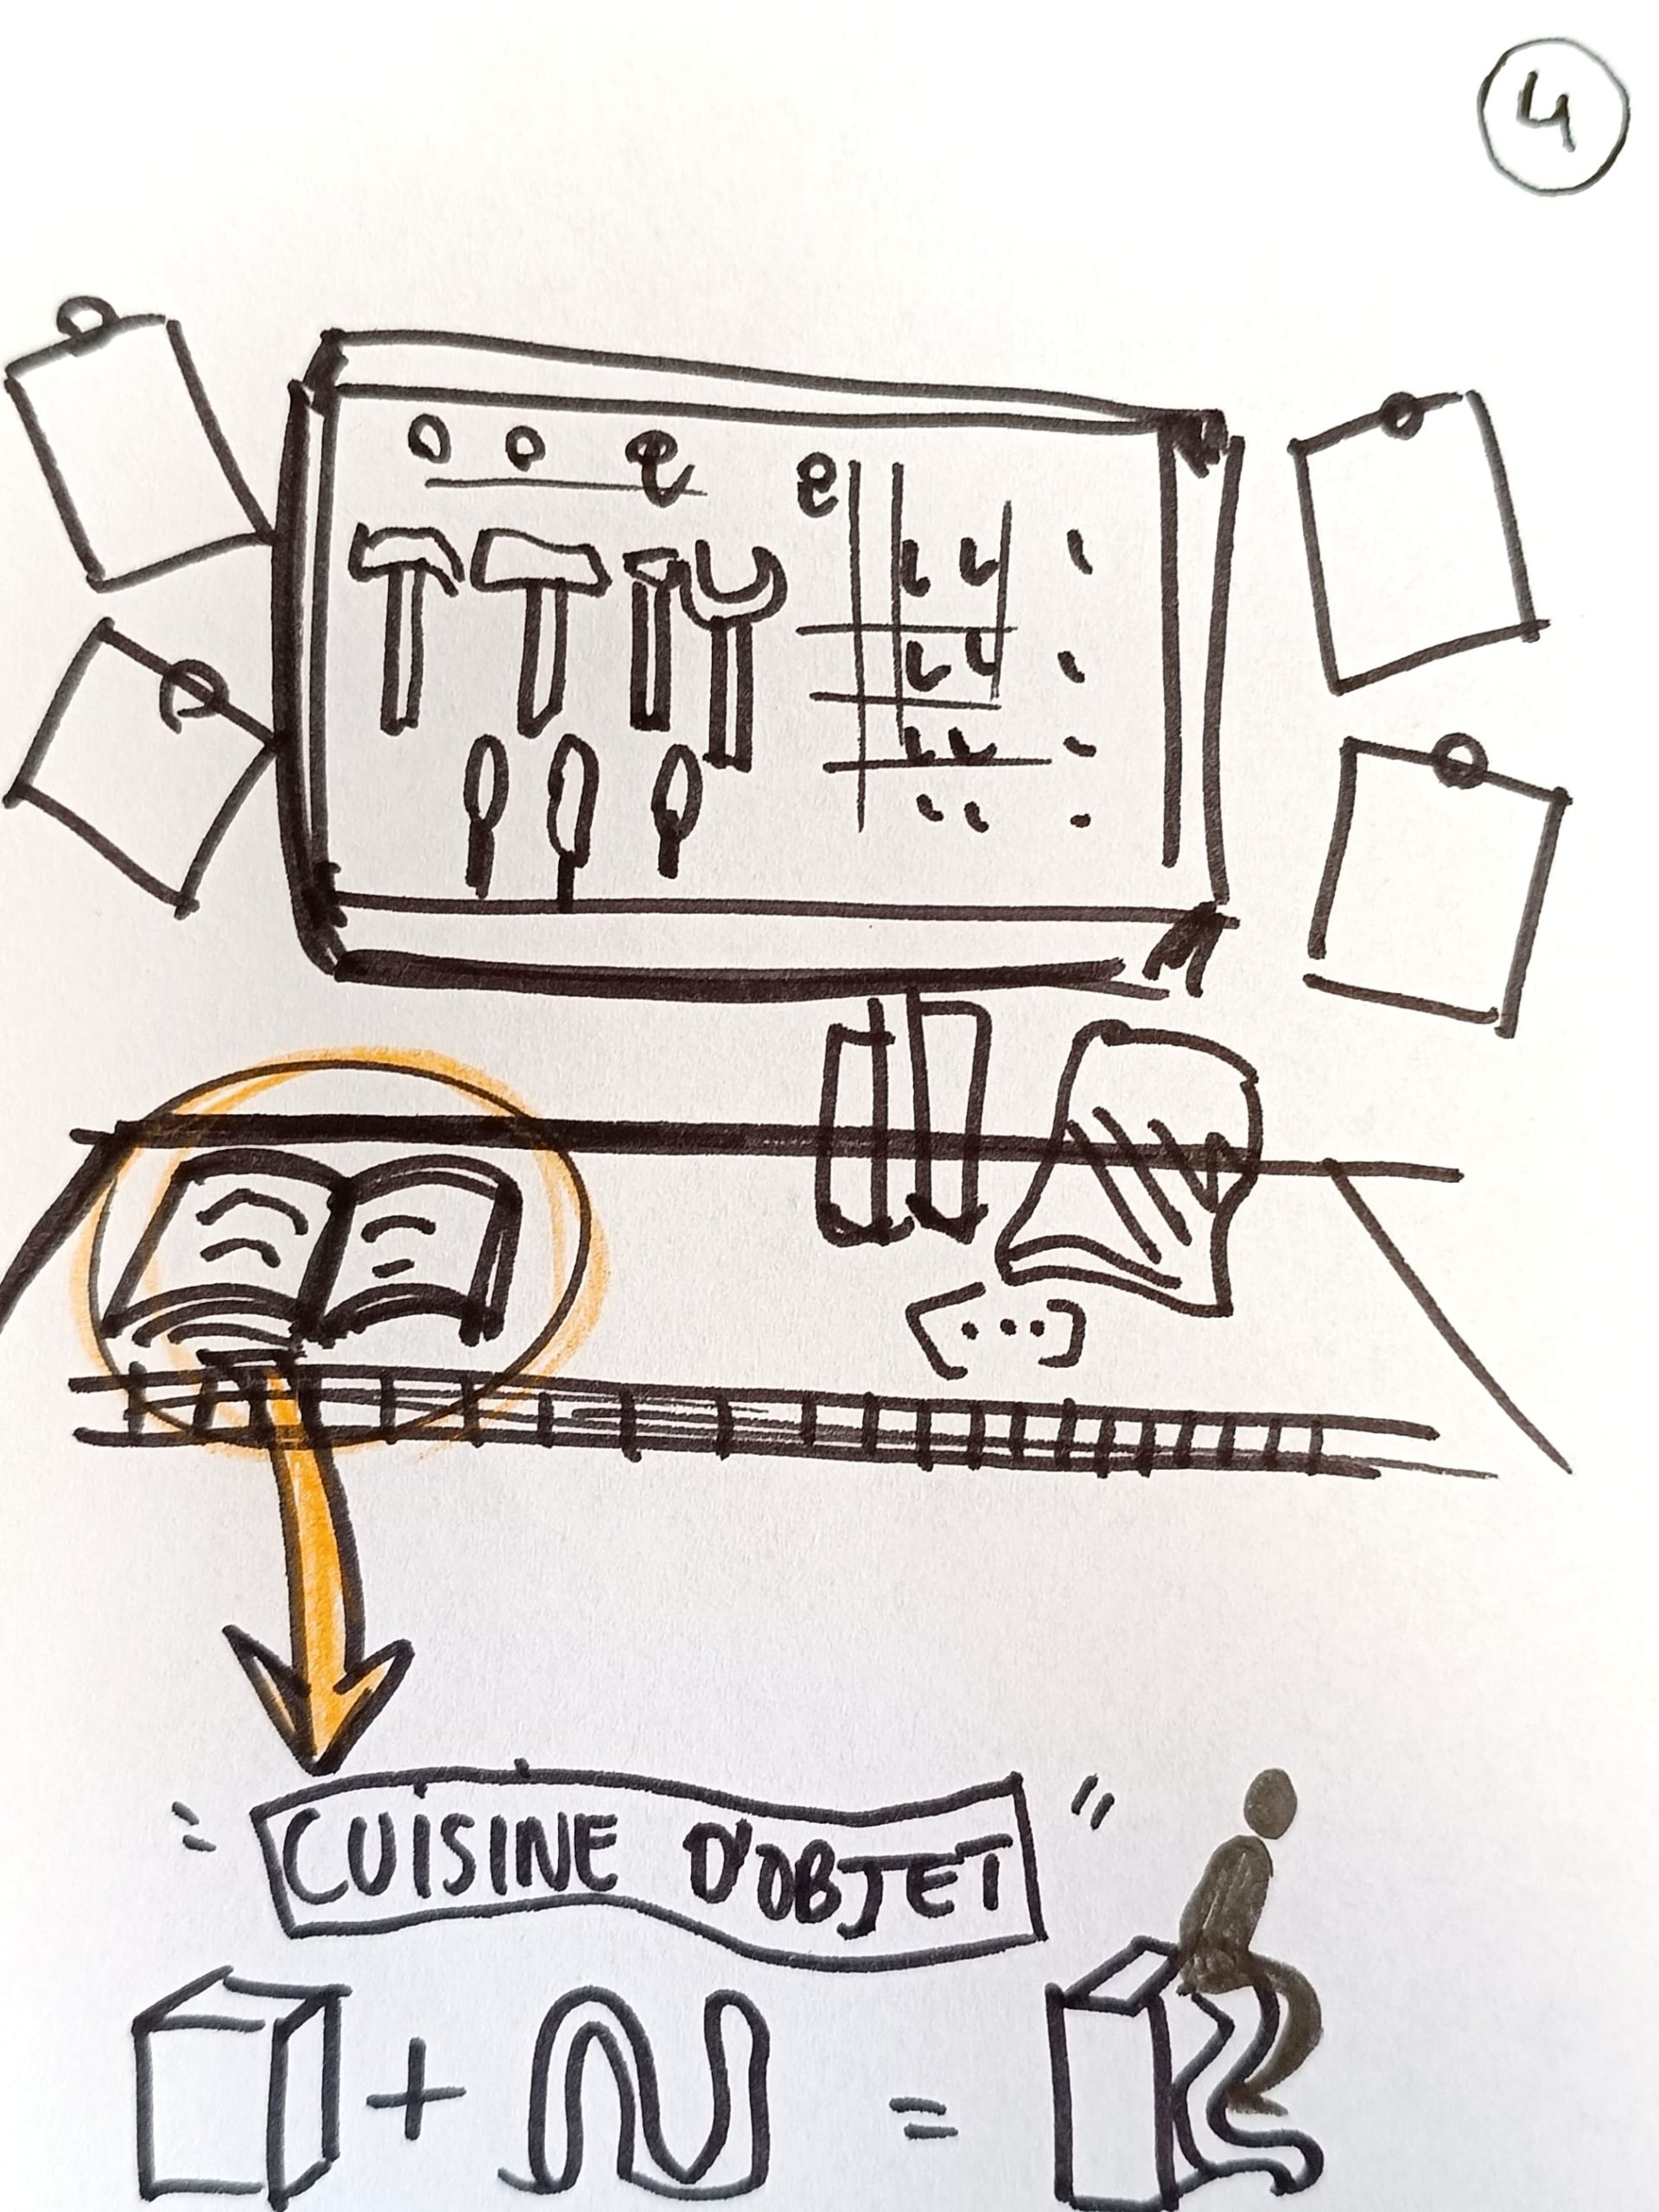 4
CUISINE D'OBJET